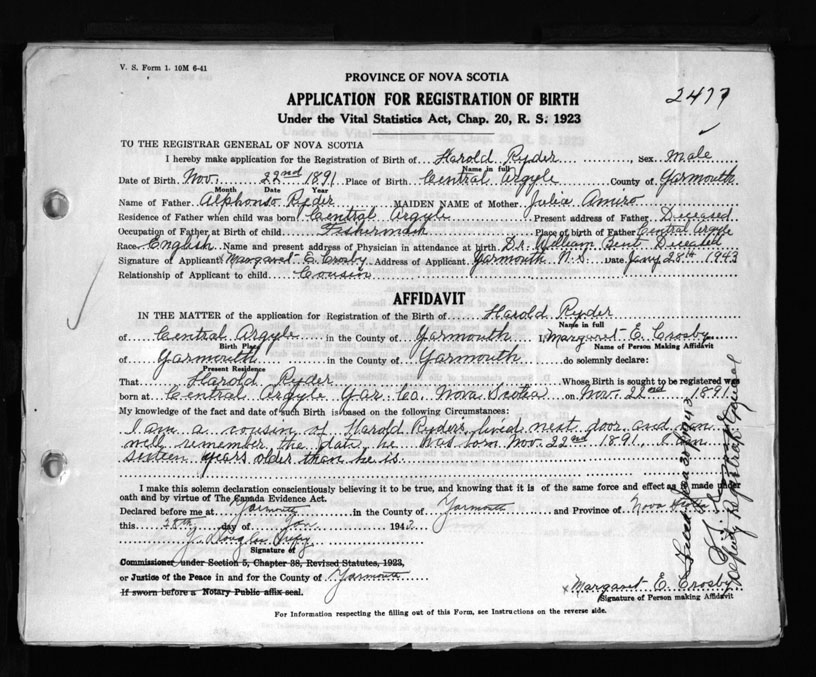 V. S. Form 1. 10M 6-41
PROVINCE OF NOVA SCOTIA
APPLICATION FOR REGISTRATION OF BIRTH
2477
Under the Vital Statistics Act, Chap. 20, R. S. 1923
TO THE REGISTRAR GENERAL OF NOVA SCOTIA
I hereby make application for the Registration of Birth of Harold Ryder, Sex Male
Name in full
Date of Birth Nov. 22nd 1891 Place of Birth Central Argyle County of Yarmouth
Month Date Year
Name of Father Alphonso Ryder MAIDEN NAME of Mother Julia Amiro
Residence of Father when child was born Central Argyle Present address of Father Deceased
Occupation of Father at Birth of child Fisherman Place of birth of Father Central Argyle
Race English Name and present address of Physician in attendance at birth Dr. William Bent Deceased
Signature of Applicant Margaret E. Crosby Address of Applicant Yarmouth N.S. Date Jany 28th 1943
Relationship of Applicant to child Cousin
AFFIDAVIT
IN THE MATTER of the application for Registration of the Birth of Harold Ryder
Name in full
of Central Argyle in the County of Yarmouth I, Margaret E. Crosby
Birth Place Name of Person Making Affidavit
of Yarmouth in the County of Yarmouth do solemnly declare:
Present Residence
That Harold Ryder Whose Birth is sought to be registered was
born at Central Argyle Yar. Co. Nova Scotia on Nov. 22nd 1891
My knowledge of the fact and date of such Birth is based on the following Circumstances:
I am a cousin of Harold Ryder's, lived next door and can
well remember the date he was born Nov. 22nd 1891, I am
sixteen years older than he is
I make this solemn declaration conscientiously believing it to be true, and knowing that it is of the same force and effect as if made under
oath and by virtue of The Canada Evidence Act.
Declared before me at Yarmouth in the County of Yarmouth and Province of Nova Scotia
this 28th day of Jan 194
Signature of
Commissioner under Section 5, Chapter 38, Revised Statutes, 1923,
or Justice of the Peace in and for the County of Yarmouth
If sworn before a Notary Public affix seal.
x Margaret E. Crosby
Signature of Person making Affidavit
For Information respecting the filling out of this Form, see Instructions on the reverse side.
Deputy Registrar General